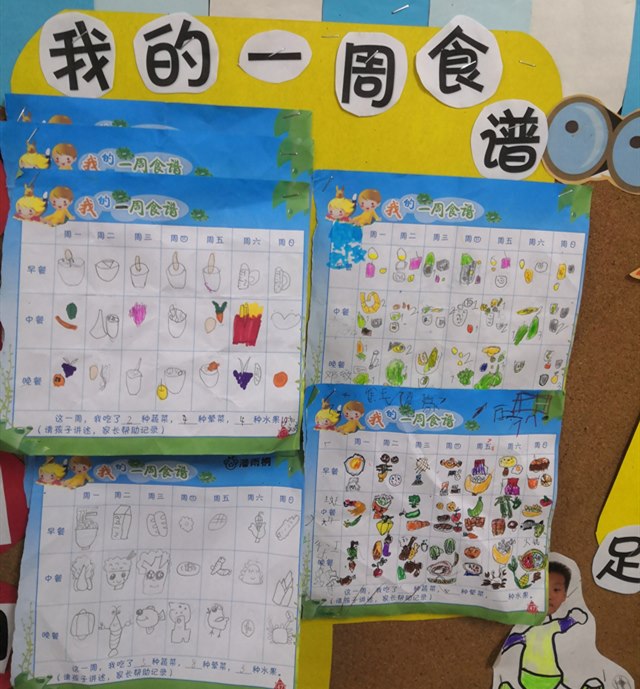 我的一周食谱
我的一周食谱
我的一周食谱
周一 周二 周三 周四 周五 周六 周日
早餐
中餐
晚餐
这一周，我吃了 2 种蔬菜， 种荤菜， 4 种水果
（请孩子讲述，家长帮助记录）
我的一周食谱
周一 周二 周三 周四 周五 周六 周日
早餐
中餐
晚餐
我的一周食谱
周一 周二 周三 周四 周五 周六 周日
早餐
中餐
晚餐
这一周，我吃了 种蔬菜， 种荤菜， 3 种水果。
（请孩子讲述，家长帮助记录）
我的一周食谱
周一 周二 周三 周四 周五 周六 周日
早餐
中餐
晚餐
这一周，我吃了 种蔬菜， 种荤菜， 种水果。
（请孩子讲述，家长帮助记录）
足